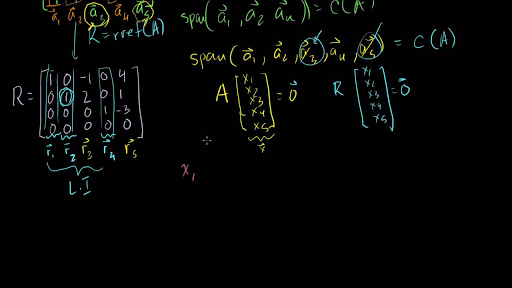 a⃗₁ a⃗₂ a⃗₃ a⃗₄ a⃗₅
span(a⃗₁, a⃗₂ a⃗₄)) = C(A)
R = rref(A)
span(a⃗₁, a⃗₂, a⃗₃, a⃗₄, a⃗₅) = C(A)
R = [1 0 -1 0 4
0 1 2 0 1
0 0 0 1 -3
0 0 0 0 0]
r⃗₁ r⃗₂ r⃗₃ r⃗₄ r⃗₅
L.I
A [x₁ x₂ x₃ x₄ x₅] = 0⃗
x⃗
R [x₁ x₂ x₃ x₄ x₅] = 0⃗
x₁